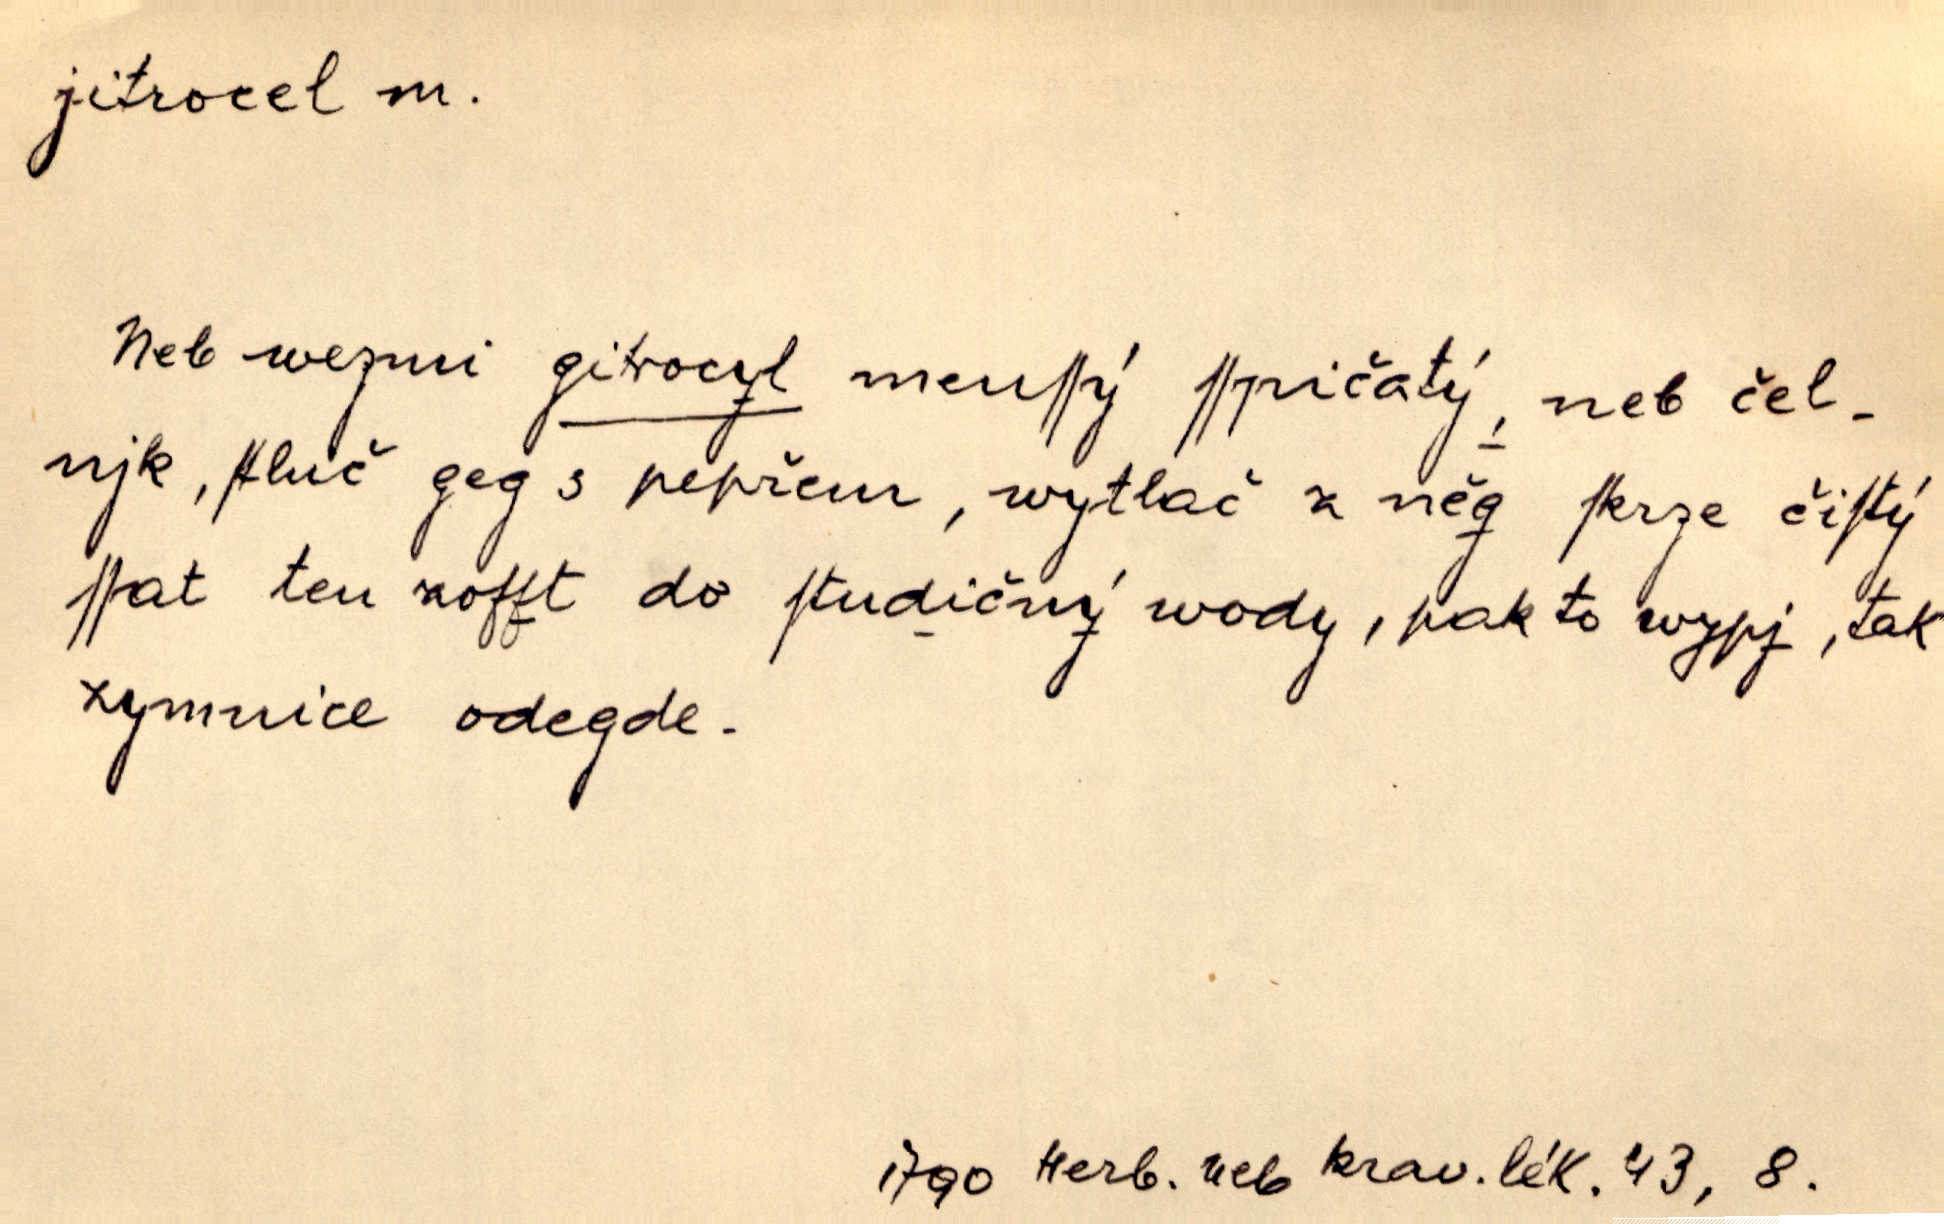 jitrocel m.
Neb wezmi gitrocyl menſſý ſſpičatý, neb čel-
njk, ſtluč geg s pepřem, wytlač z něg ſkrze čiſtý
ſſat ten zofft do ſtudičný wody, pak to wypj, tak
zymnice odegde.
1790 Herb. neb krav. lék. 43, 8.